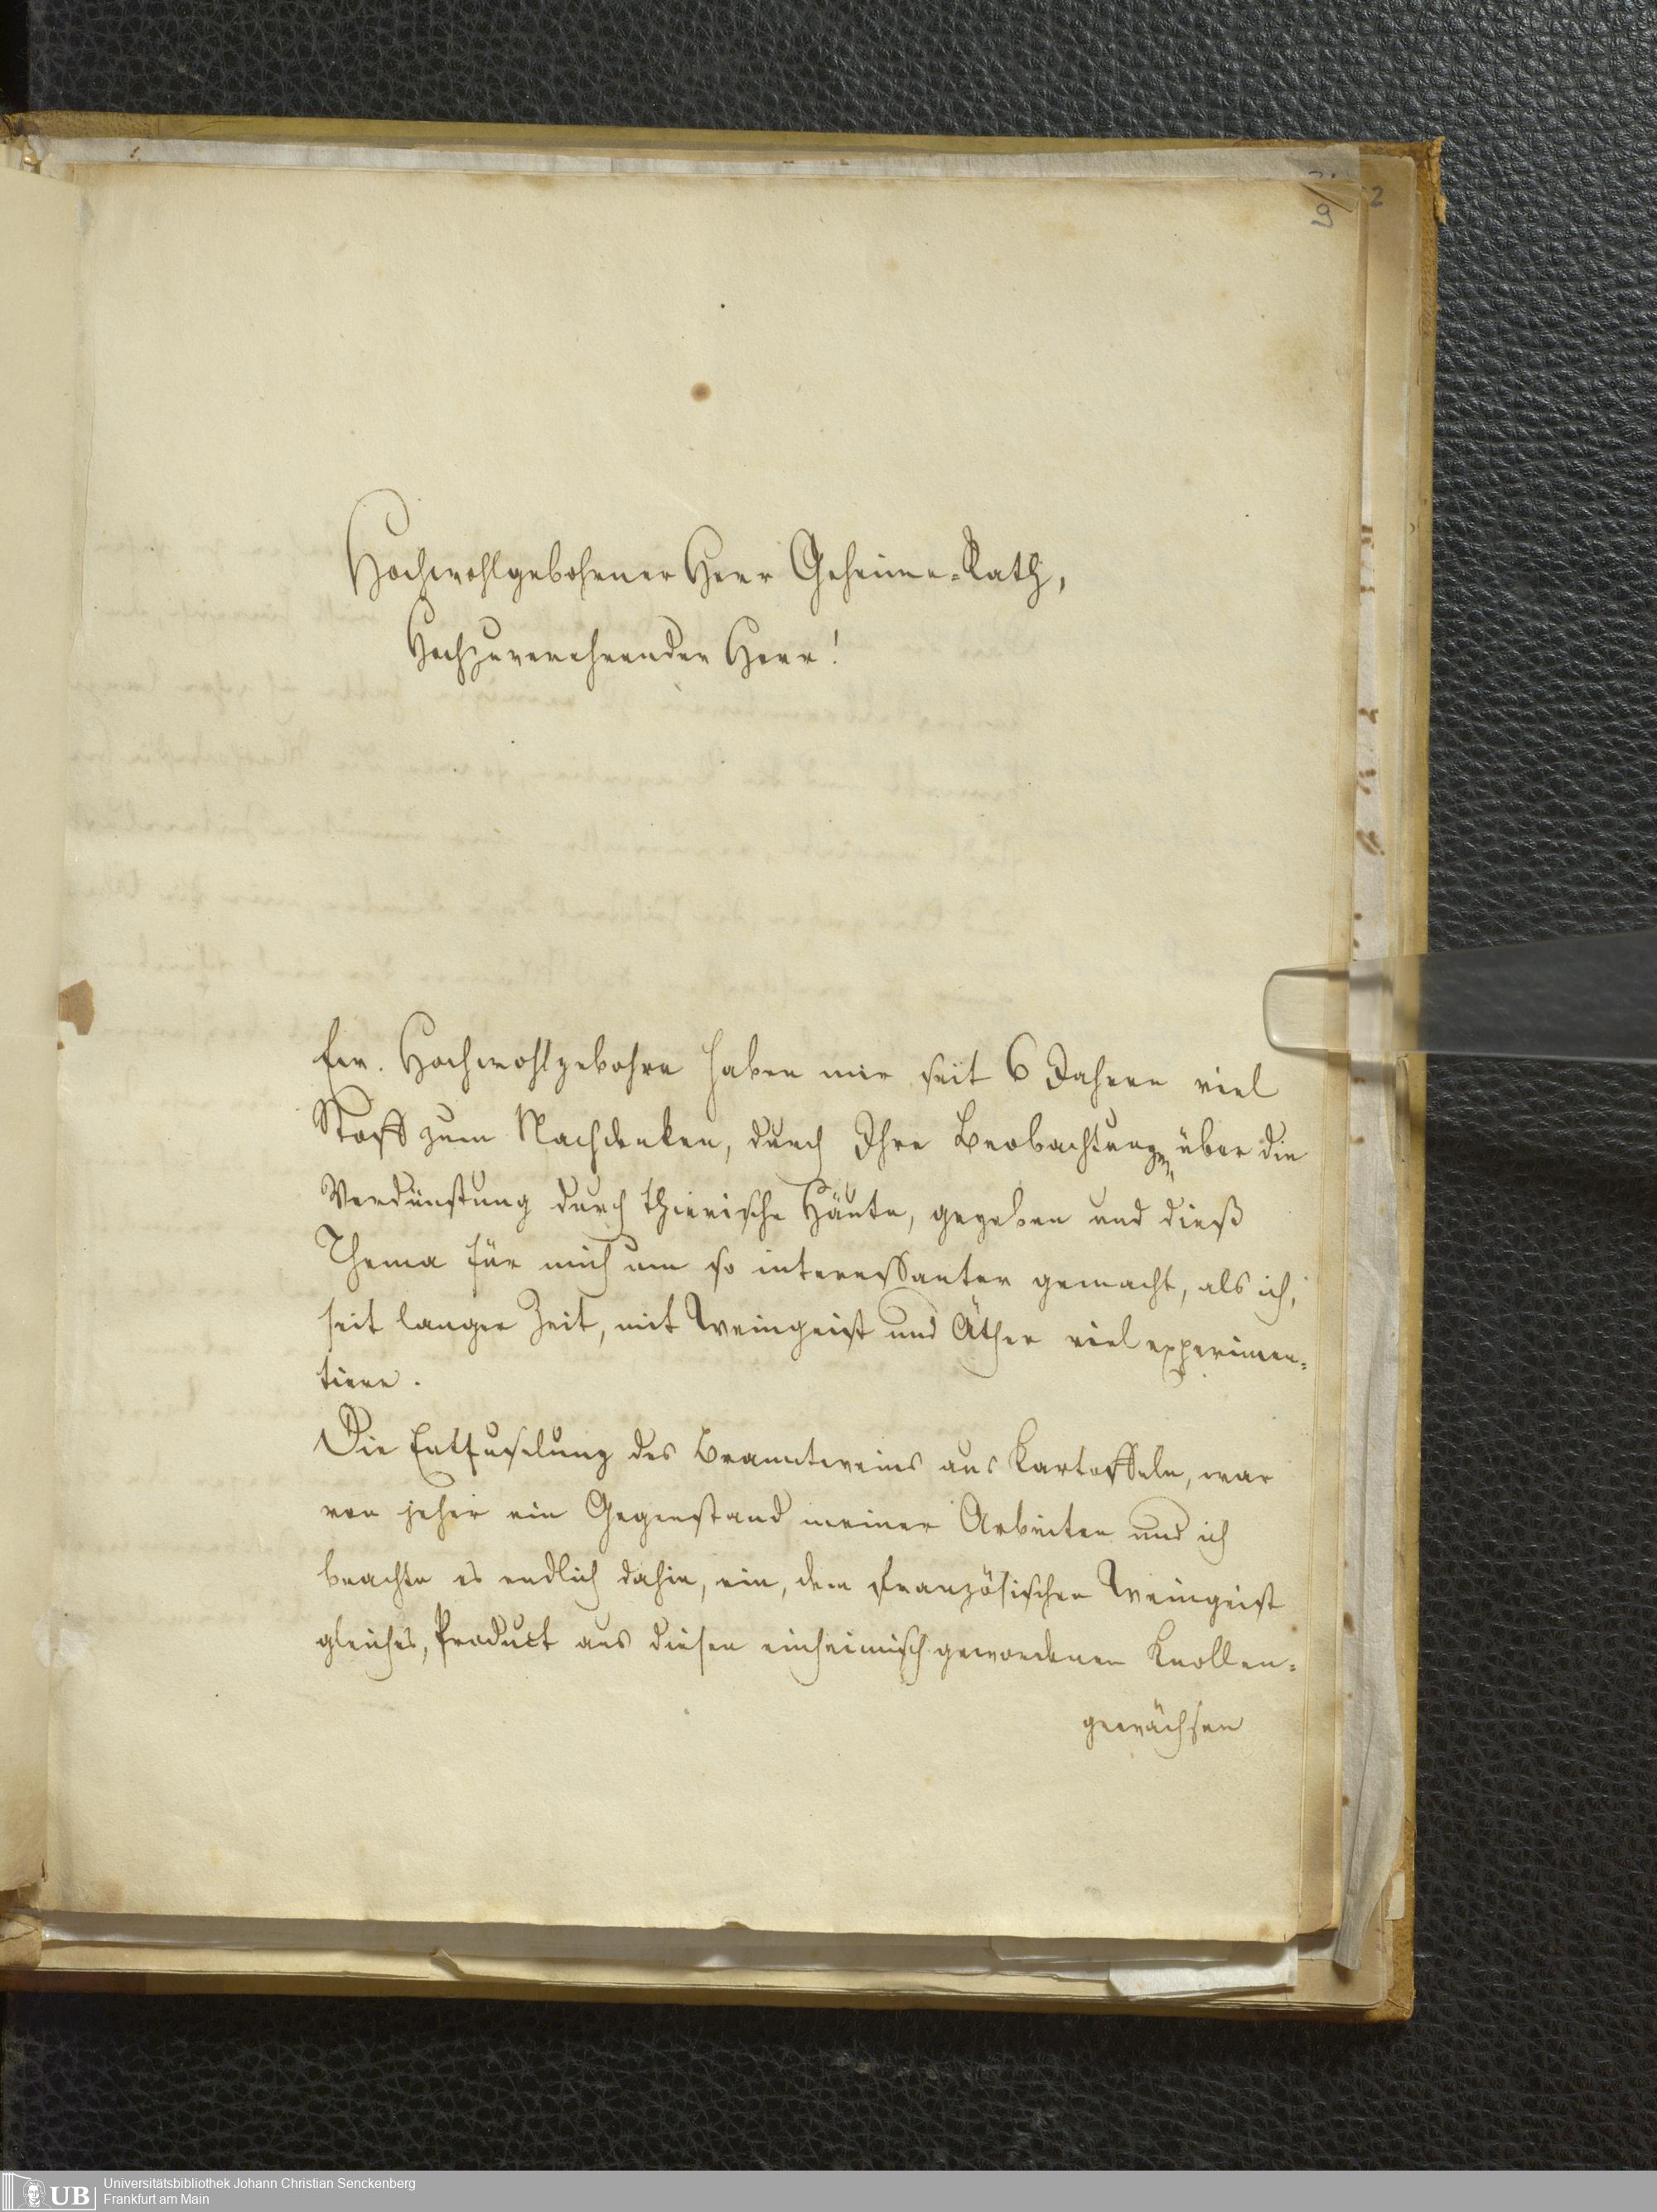 2
Hochwohlgebohrner Herr Geheime-Rath,
Hochzuverehrender Herr!
Ew. Hochwohlgebohrn haben mir seit 6 Jahren viel
Stoff zum Nachdenken, durch Ihre Beobachtungen über die
Verdünstung durch thierische Häute, gegeben und dieß
Thema für mich um so interessanter gemacht, als ich,
seit langer Zeit, mit Weingeist und Äther viel experimen=
tiere.
Die Entfuselung des Branntweins aus Kartoffeln, war
von jeher ein Gegenstand meiner Arbeiten und ich
brachte es endlich dahin, ein, dem Französischen Weingeist
gleiches, Product aus diesen einheimisch gewordenen Knollen=
gewächsen
UB
Universitätsbibliothek Johann Christian Senckenberg
Frankfurt am Main